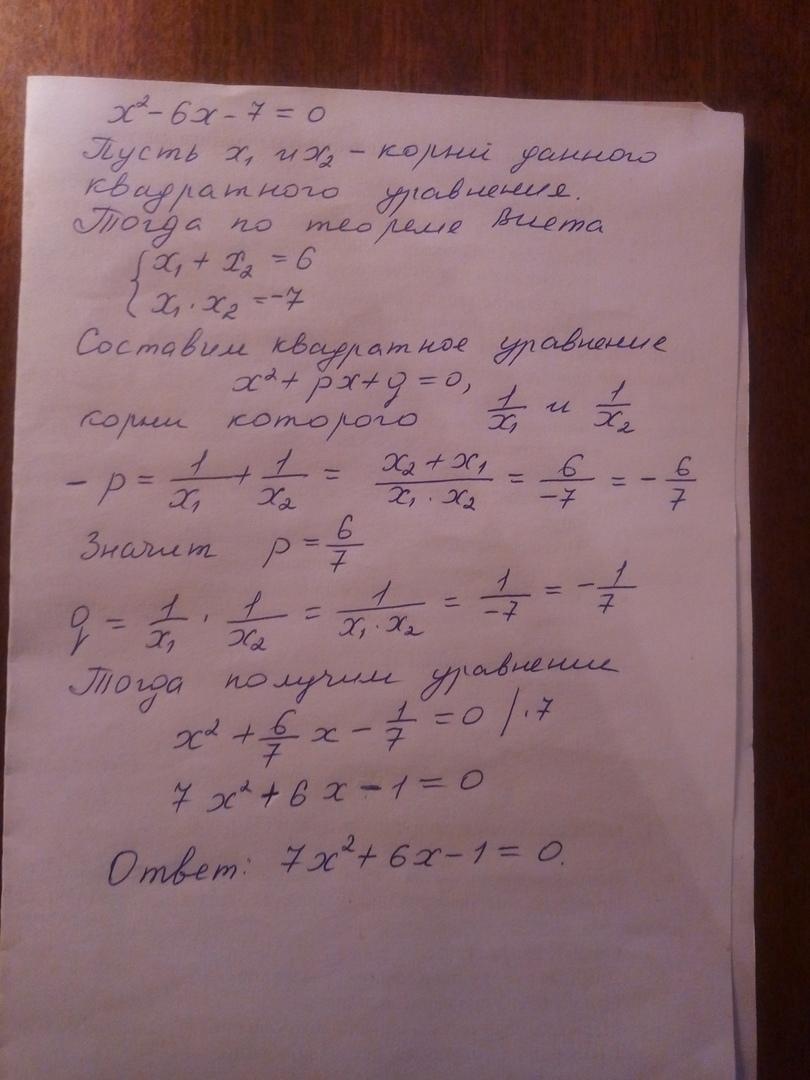 x² - 6x - 7 = 0
Пусть x₁ и x₂ - корни данного
квадратного уравнения.
Тогда по теореме Виета
{ x₁ + x₂ = 6
x₁ · x₂ = -7
Составим квадратное уравнение
x² + px + q = 0,
корни которого 1/x₁ и 1/x₂
- p = 1/x₁ + 1/x₂ = (x₂ + x₁)/(x₁ · x₂) = 6/-7 = - 6/7
Значит p = 6/7
q = 1/x₁ · 1/x₂ = 1/(x₁ · x₂) = 1/-7 = - 1/7
Тогда получим уравнение
x² + 6/7 x - 1/7 = 0 | · 7
7x² + 6x - 1 = 0
Ответ: 7x² + 6x - 1 = 0.